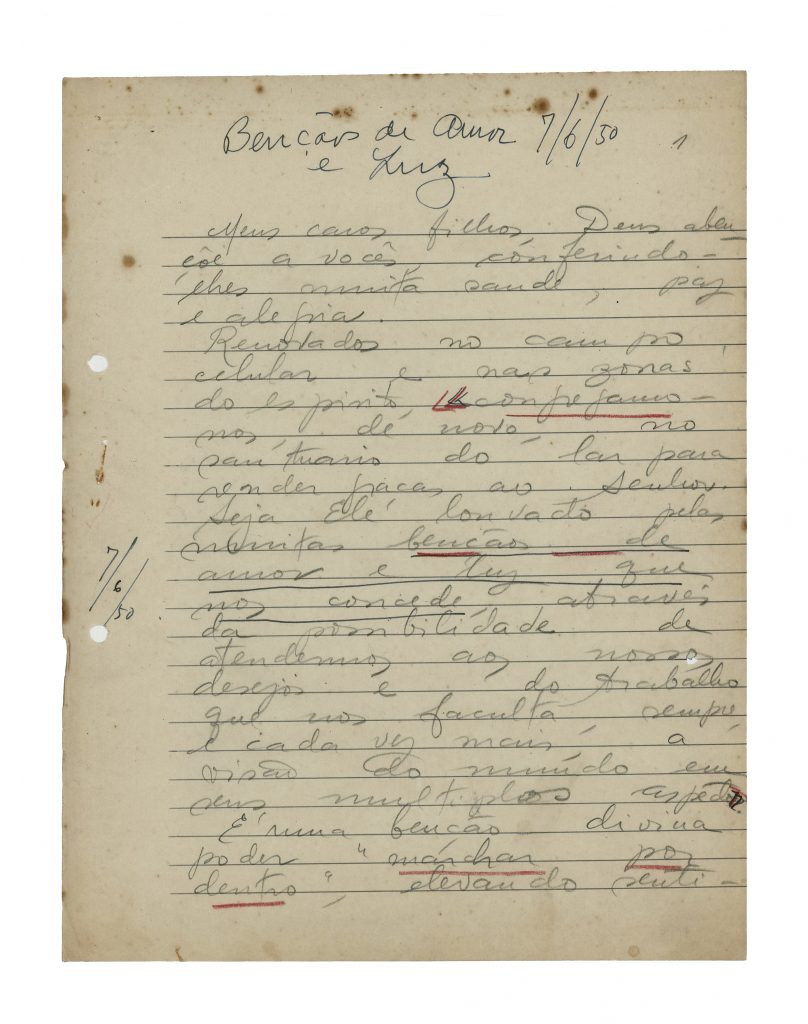 Bençãos de Amor 7/6/50 1
e Luz
Meus caros filhos, Deus aben-
çõe a vocês, conferindo-
lhes muita saude, paz
e alegria.
Renovados no campo
celular e nas zonas
do espirito, congregamo-
nos, de novo, no
santuario do lar para
render graças ao Senhor.
Seja Ele louvado pelas
muitas bençãos de
amor e luz que
nos concede, através
da possibilidade de
atendermos aos nossos
desejos e do trabalho
que nos faculta sempre
e cada vez mais, a
visão do mundo em
seus multiplos aspectos.
É uma benção divina
poder "marchar por
dentro", elevando senti-
7/6/50